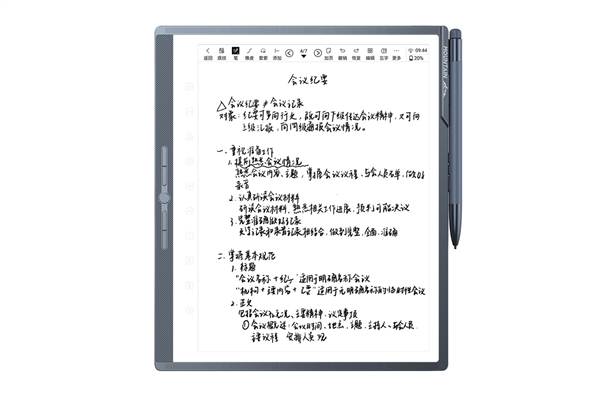 返回 底纹 笔 橡皮 套索 添加 4/7 加页 撤销 恢复 编辑 忘字 更多 09:44
20%
MOUNTAIN
会议纪要
△会议纪要≠会议记录
对象：纪要可多向行文，既可向下级传达会议精神，又可向
上级汇报，向同级通报会议情况。
一、重视准备工作
1. 提前熟悉会议情况
熟悉会议内容、主题，掌握会议议程、与会人员名单，做好
录音
2. 认真研读会议材料
研读会议材料，熟悉相关工作进展，预判可能决议
3. 完整准确做好记录
记录和录音记录相结合，做到完整、全面、准确
二、掌握基本规范
1. 标题
"会议名称+纪要"适用于明确名称会议
"机构+内容+纪要"适用于无明确名称的临时性会议
2. 正文
包括会议概况、主要精神、议定事项
① 会议概况：会议时间、地点、主题、主持人、与会人员
议程